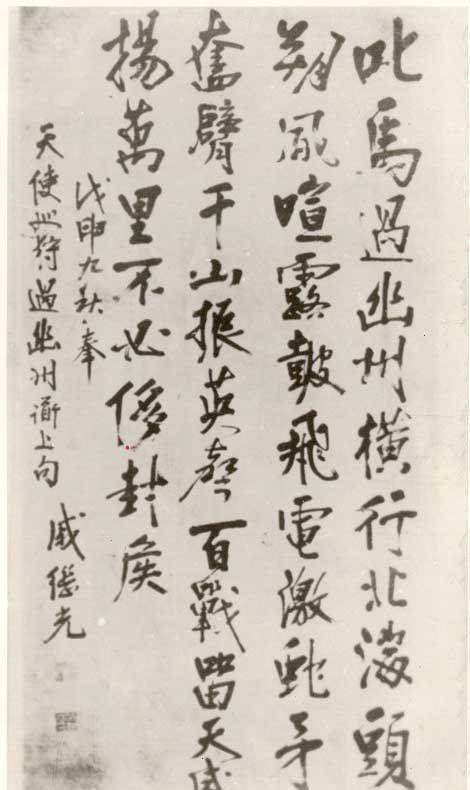 叱馬過幽州橫行北海頭
朔風喧露皷飛電激虵矛
奮臂千山振英聲百戰留天威
揚萬里不必侈封侯
戊申九秋奉
天使巡狩過幽州上句
戚繼光